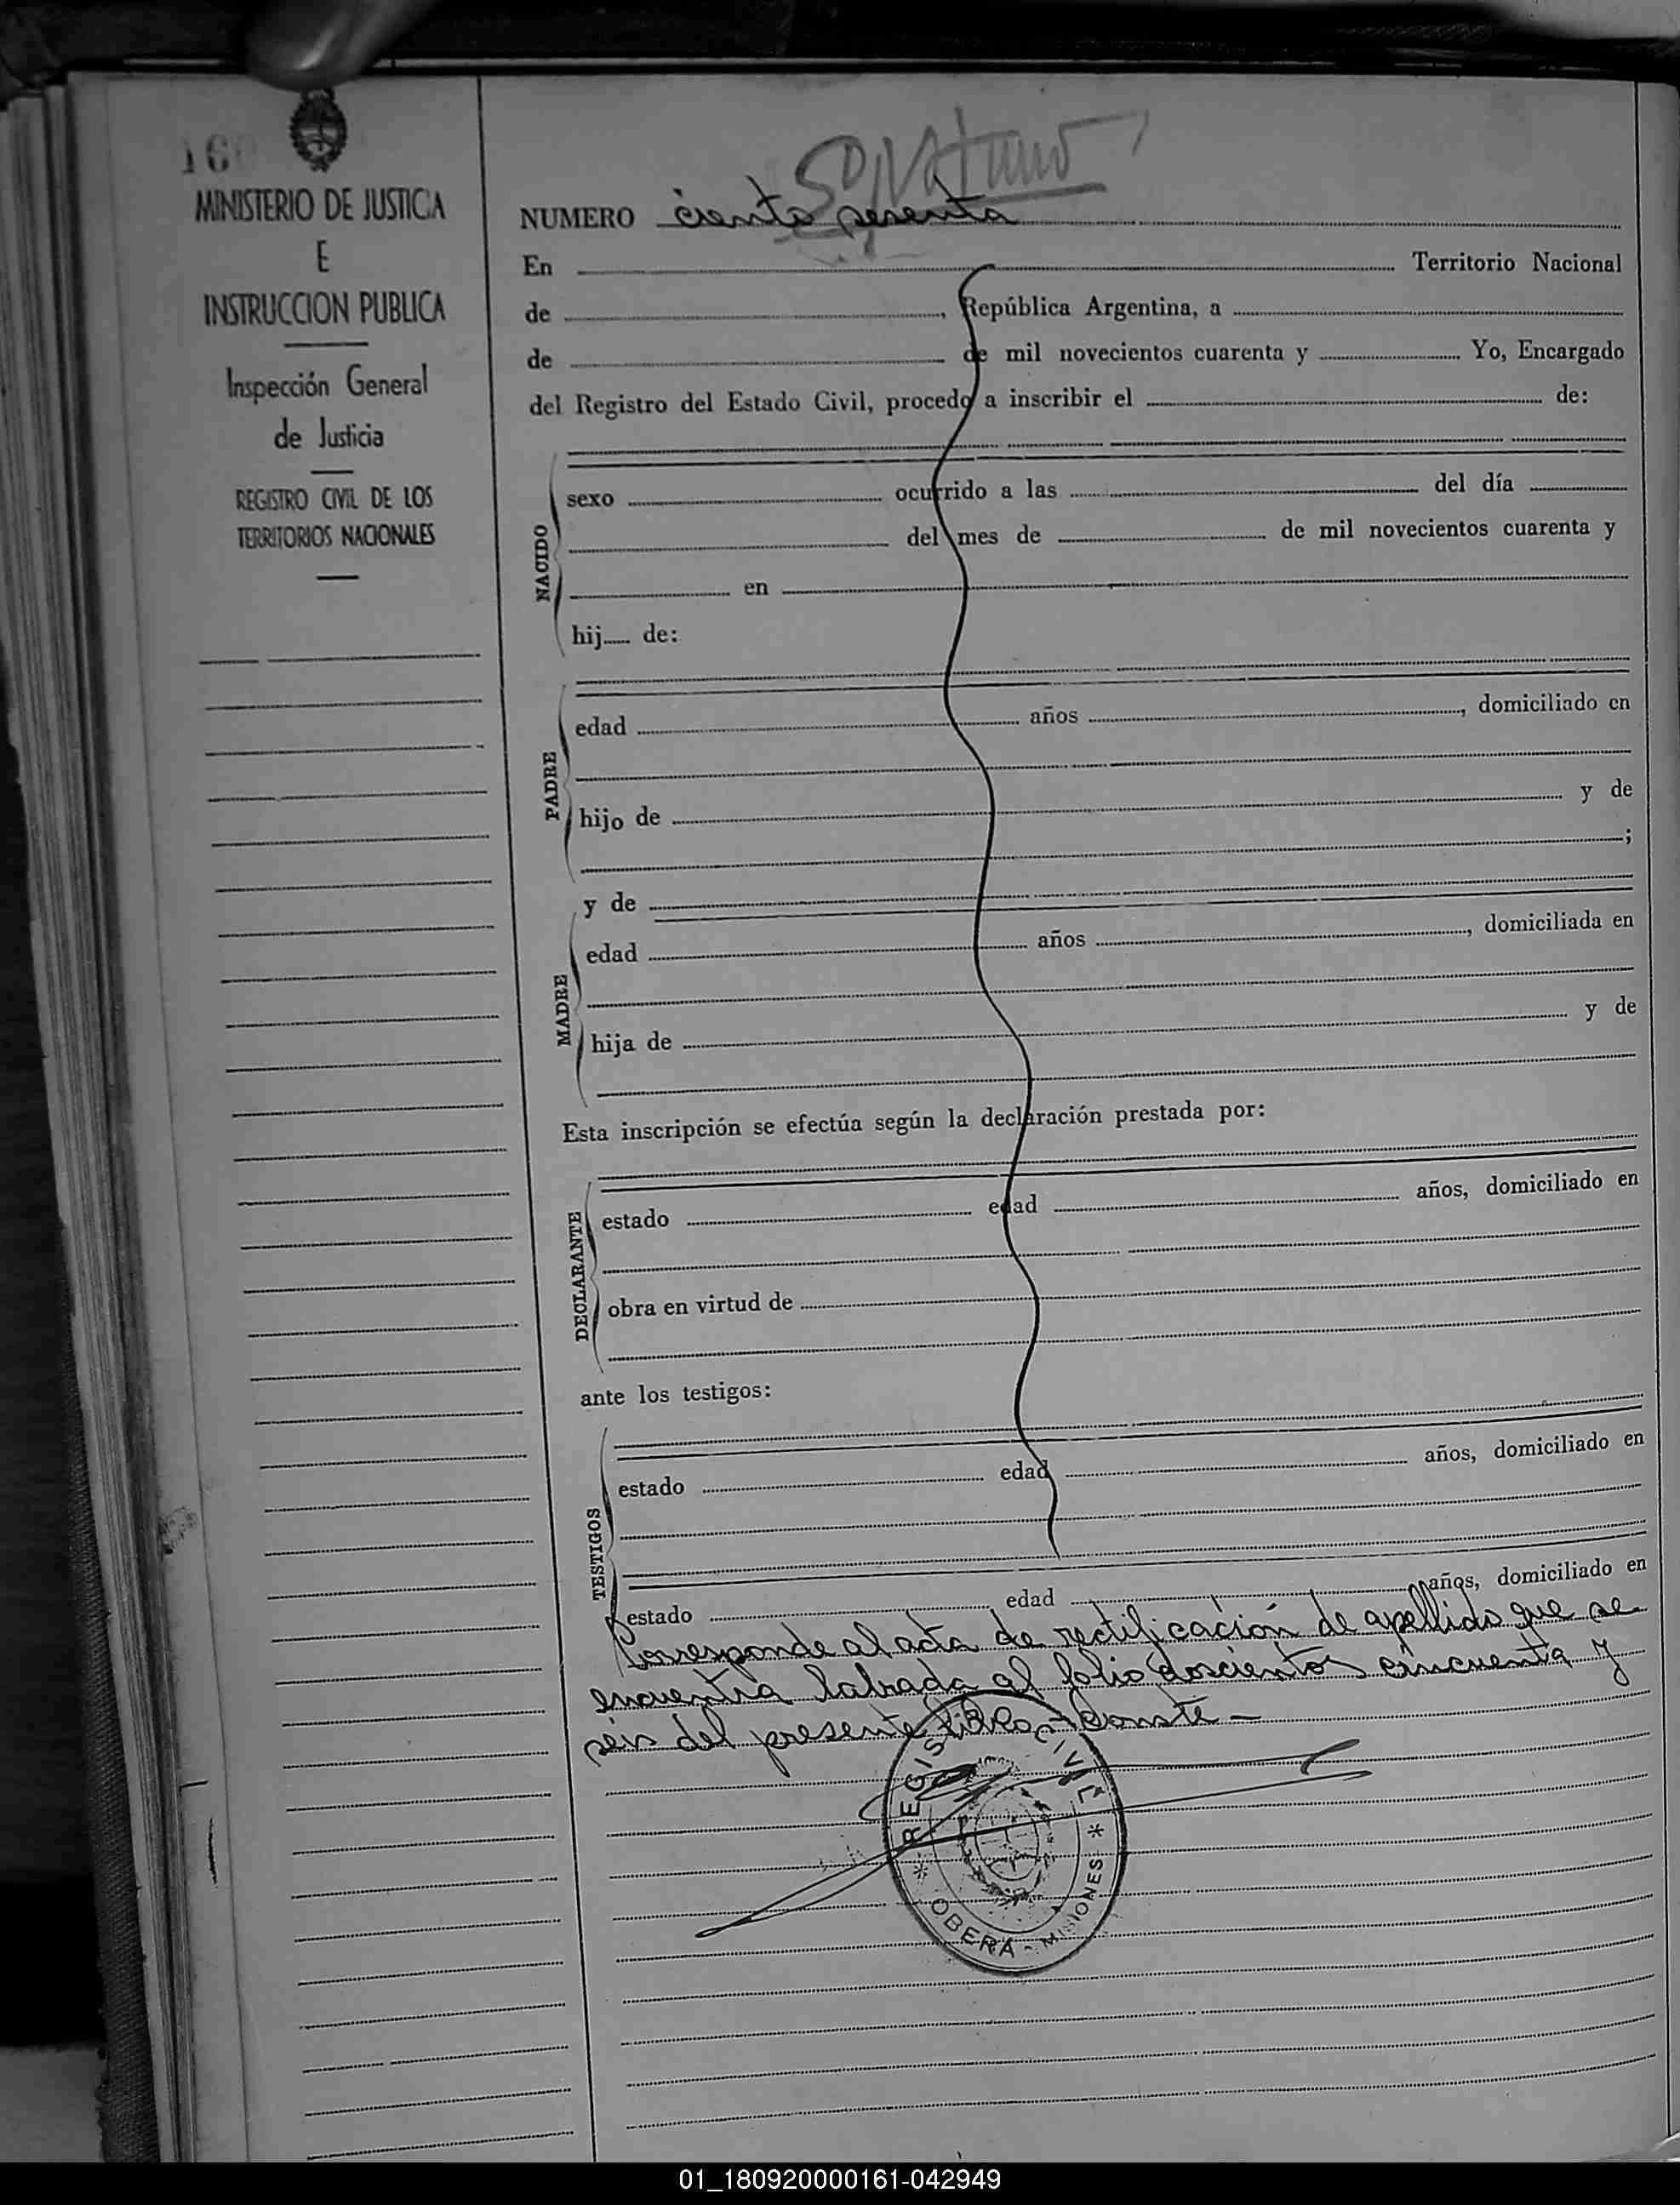 MINISTERIO DE JUSTICIA
E
INSTRUCCION PUBLICA
Inspección General
de Justicia
REGISTRO CIVIL DE LOS
TERRITORIOS NACIONALES
NUMERO ciento sesenta
En Territorio Nacional
de , República Argentina, a
de de mil novecientos cuarenta y Yo, Encargado
del Registro del Estado Civil, procedo a inscribir el de:
NACIDO
sexo ocurrido a las del día
del mes de de mil novecientos cuarenta y
en
hij de:
PADRE
edad años , domiciliado en
hijo de y de
;
y de
MADRE
edad años , domiciliada en
hija de y de
Esta inscripción se efectúa según la declaración prestada por:
DECLARANTE
estado edad años, domiciliado en
obra en virtud de
ante los testigos:
TESTIGOS
estado edad años, domiciliado en
estado edad años, domiciliado en
Corresponde al acta de rectificación de apellido que se
encuentra labrada al folio doscientos cincuenta y
seis del presente libro - Conste -
REGISTRO CIVIL
* OBERÁ - MISIONES *
01_180920000161-042949